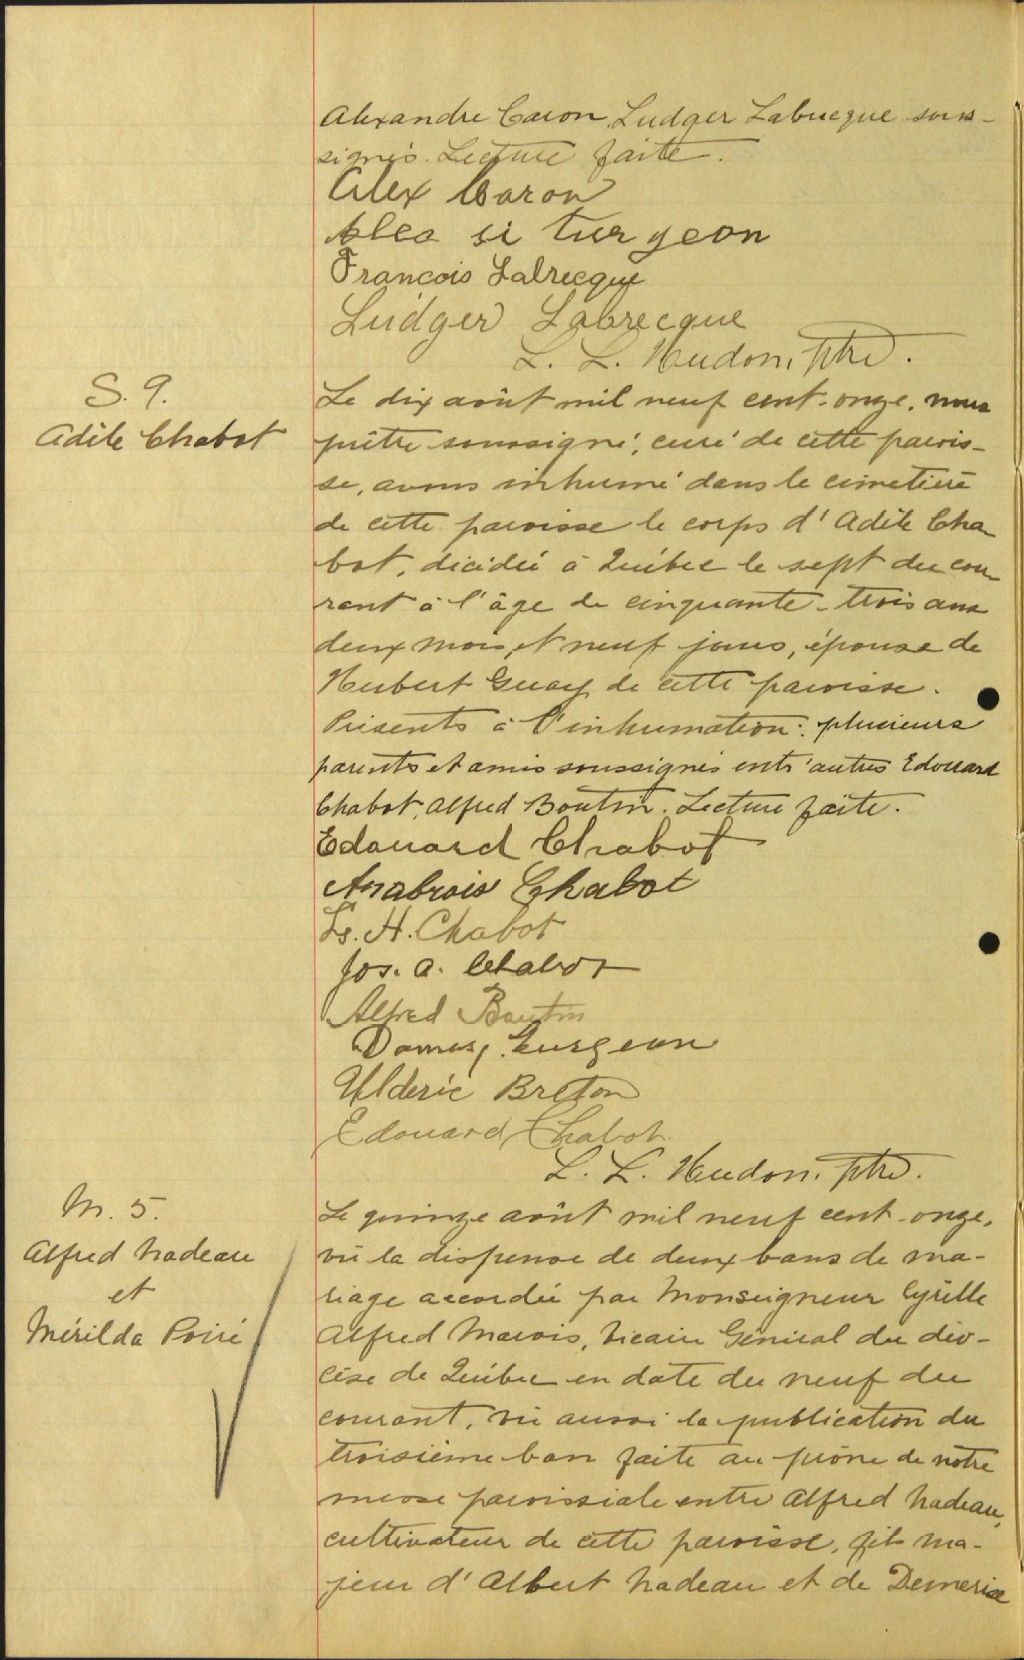 Alexandre Caron, Ludger Labrecque sous-
signés. Lecture faite.
Alex Caron
si turgeon
Francois Labrecque
Ludger Labrecque
L. L. Hudon, ptre.
S. 9.
Adèle Chabot
Le dix août mil neuf cent-onze, nous
prêtre soussigné, curé de cette parois-
se, avons inhumé dans le cimetière
de cette paroisse le corps d'Adèle Cha-
bot, décidée à Québec le sept du cou-
rant à l'âge de cinquante-trois ans
deux mois, et neuf jours, épouse de
Hubert Guay de cette paroisse.
Présents à l'inhumation: plusieurs
parents et amis soussignés entr'autres Edouard
Chabot, Alfred Boutin. Lecture faite.
Edouard Chabot
Chabot
Ls. H. Chabot
Jos. A. Chabot
Alfred Boutin
Turgeon
Ulderic Breton
Edouard Chabot
L. L. Hudon, ptre.
M. 5.
Alfred Nadeau
et
Mérilda Poiré
Le quinze août mil neuf cent-onze,
vu la dispense de deux bans de ma-
riage accordée par Monseigneur Cyrille
Alfred Marois, Vicaire Général du dio-
cèse de Québec en date du neuf du
courant, vu aussi la publication du
troisième ban faite au prône de notre
messe paroissiale entre Alfred Nadeau,
cultivateur de cette paroisse, fils ma-
jeur d'Albert Nadeau et de Demerise